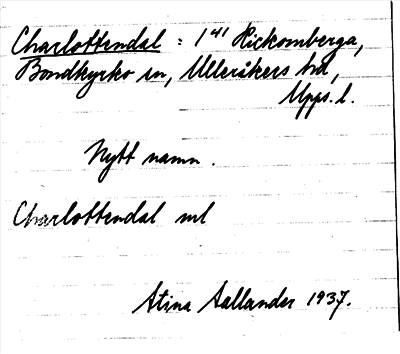 Charlottendal : 1⁴¹ Rickomberga,
Bondkyrko sn, Ulleråkers hd,
Upps. l.
Nytt namn.
Charlottendal ml
Stina Sallander 1937.